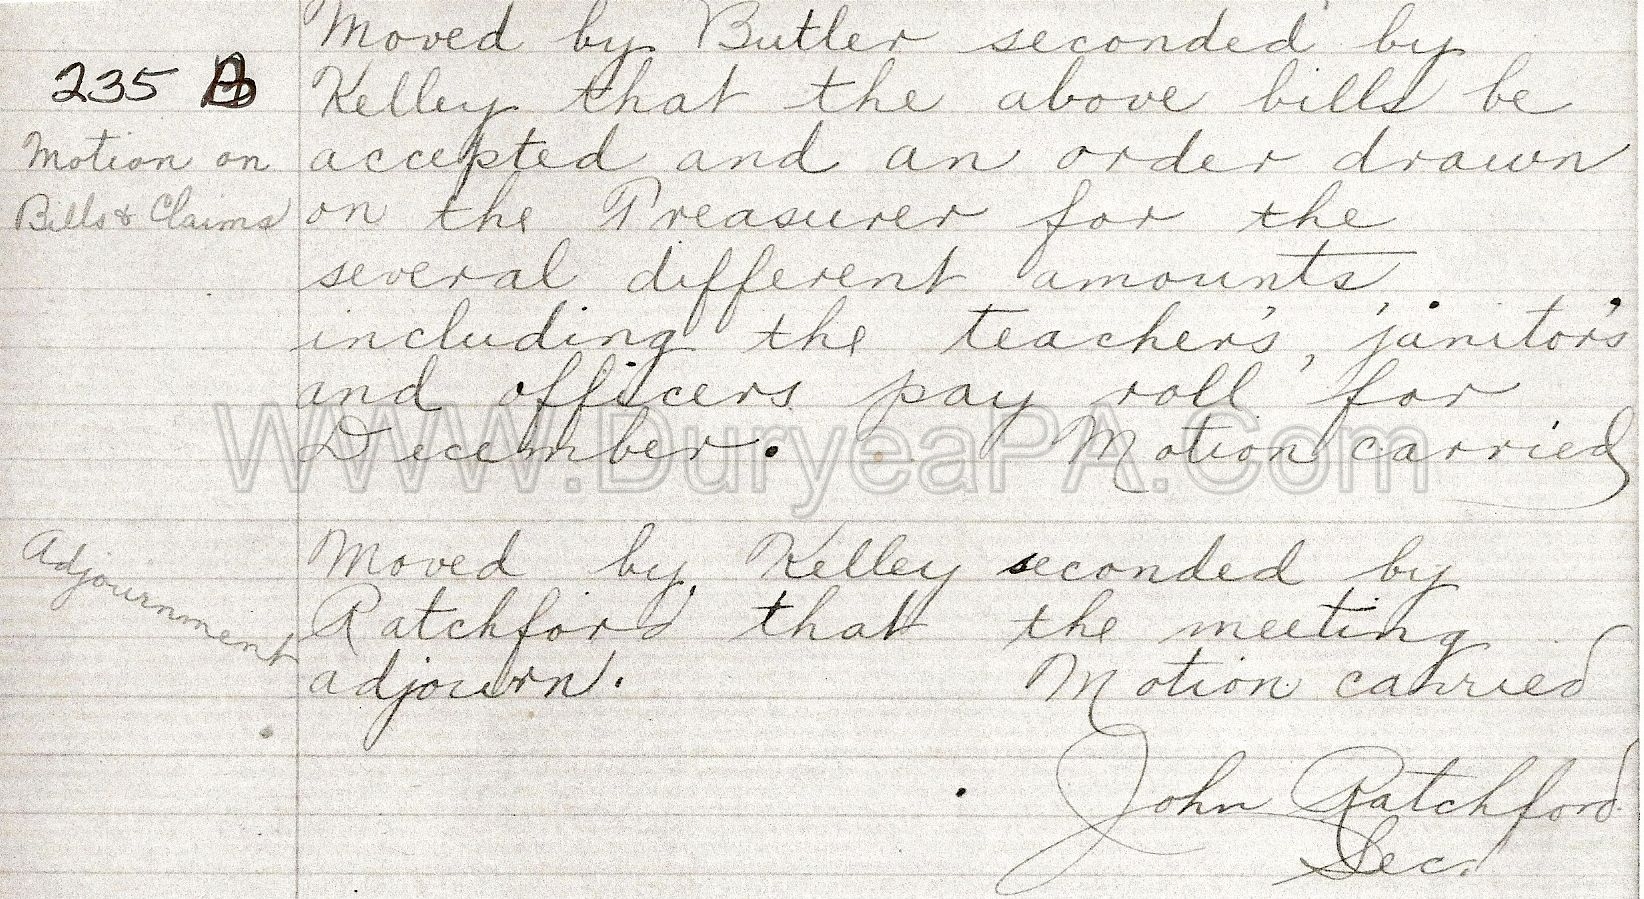 Moved by Butler seconded by
235 B
Kelley that the above bills be
Motion on
accepted and an order drawn
Bills & Claims
on the Treasurer for the
several different amounts
including the teacher's, janitor's
and officers pay roll for
December. Motion carried
WWW.DuryeaPA.Com
Adjournment
Moved by Kelley seconded by
Ratchford that the meeting
adjourn. Motion carried
John Ratchford
Sec.